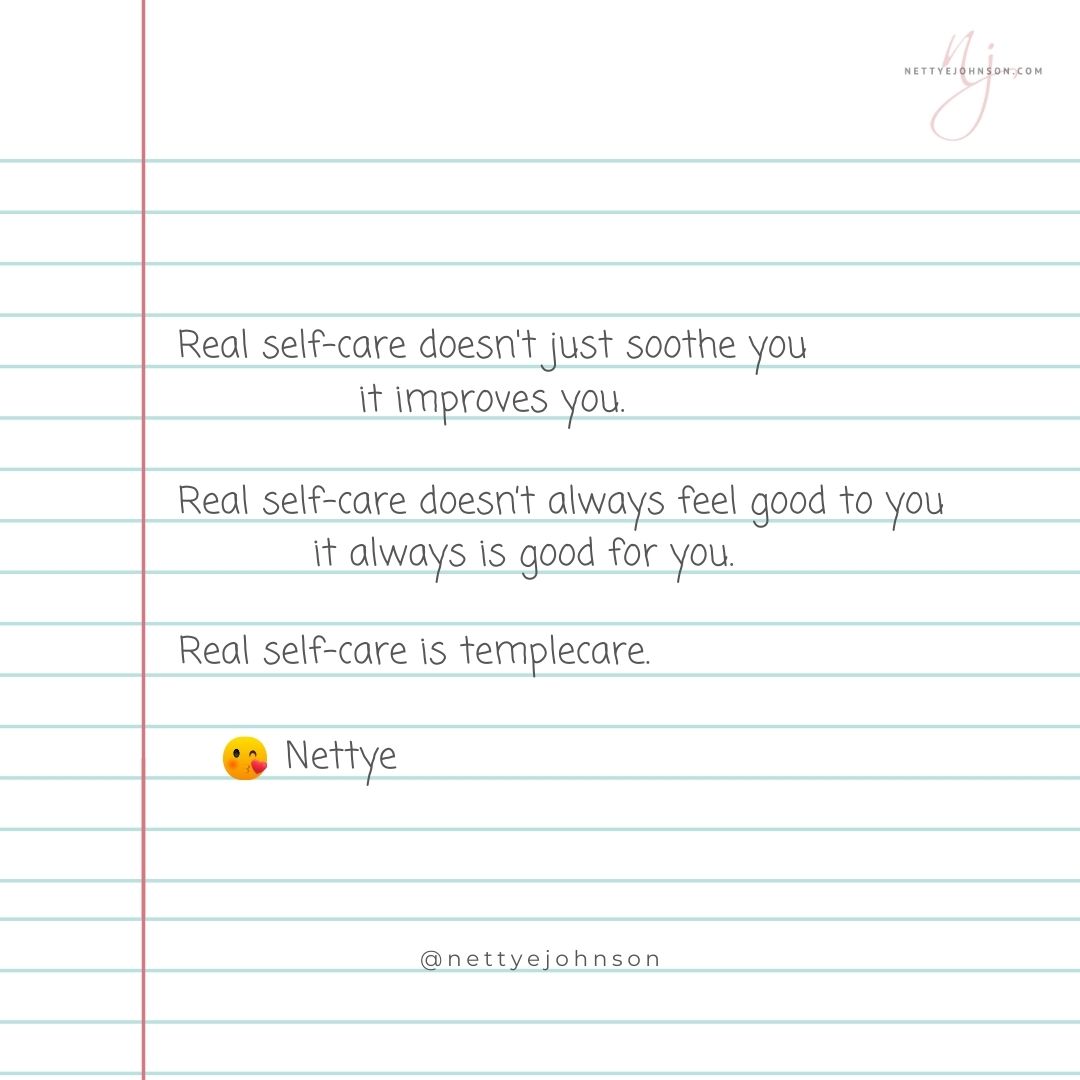 NETTYEJOHNSON.COM
Real self-care doesn't just soothe you
it improves you.
Real self-care doesn't always feel good to you
it always is good for you.
Real self-care is templecare.
😘 Nettye
@nettyejohnson